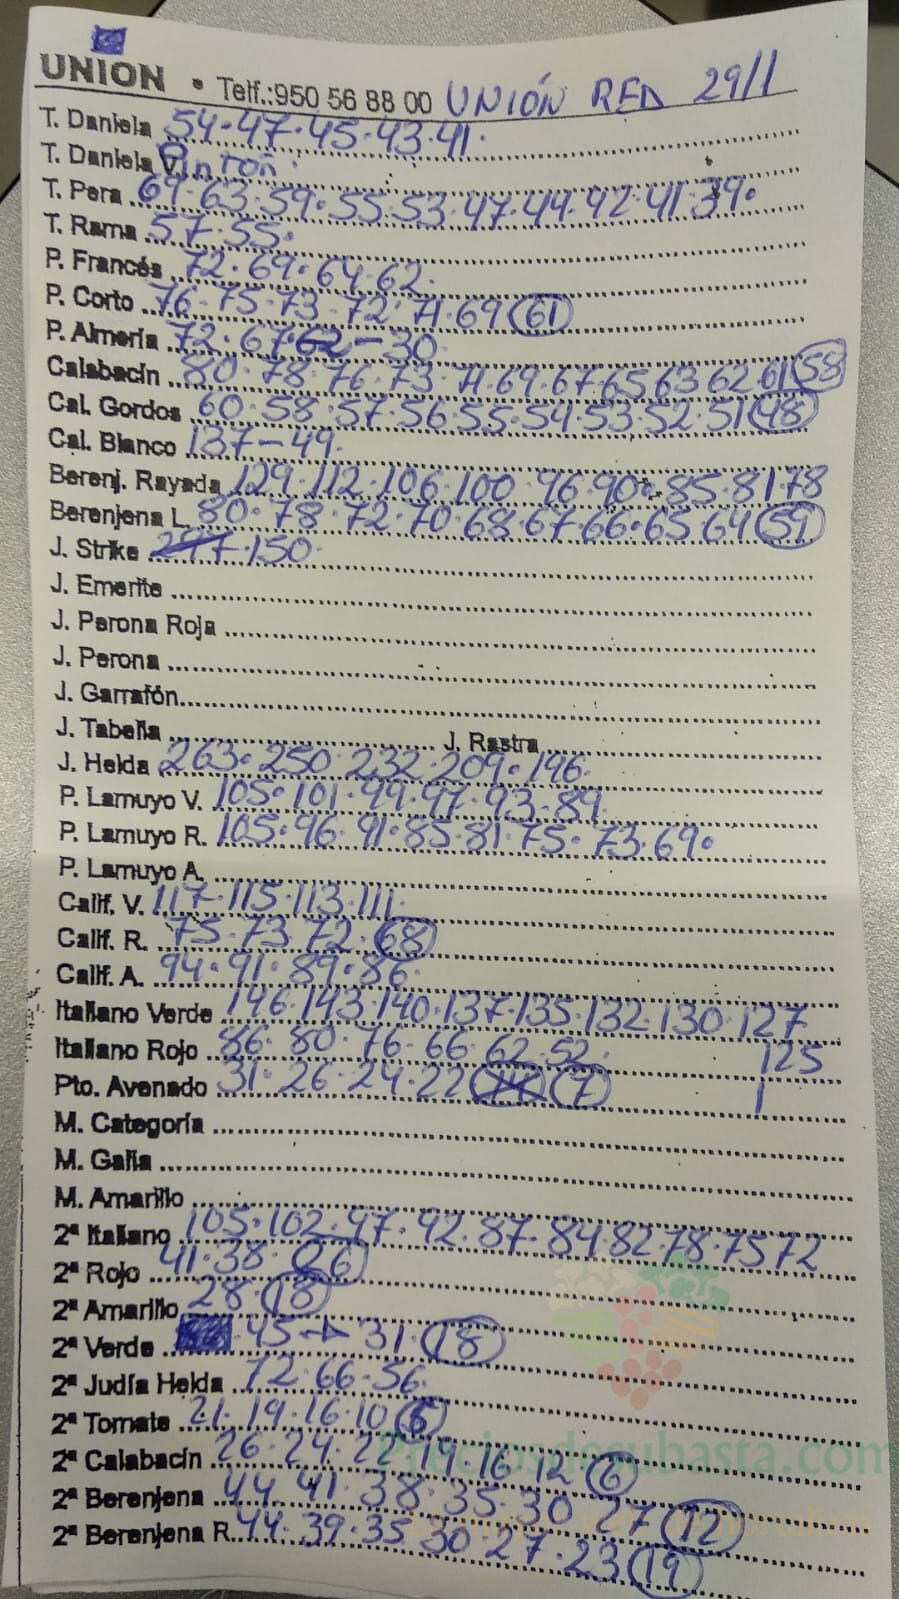 UNION • Telf.:950 56 88 00 UNIÓN RED 29/1
T. Daniela 54.47.45.43.41.
T. Daniela V. Pinton
T. Pera 69.63.59.55.53.47.44.42.41.39.
T. Rama 57.55.
P. Francés 72.69.64.62.
P. Corto 76.75.73.72.71.69 61
P. Almería 72.67.62-30
Calabacín 80.78.76.73.71.69.67.65 63 62.61 58
Cal. Gordos 60.58.57.56.55.54.53.52.51 48
Cal. Blanco 137-49.
Berenj. Rayada 129.112.106.100.96.90.85.81.78
Berenjena L. 80.78.72.70.68.67.66.65 64 59
J. Strike 297.150.
J. Emerite
J. Perona Roja
J. Perona
J. Garrafón
J. Tabella J. Rastra
J. Helda 263.250.232.209.196.
P. Lamuyo V. 105.101.99.97.93.89.
P. Lamuyo R. 105.96.91.85.81.75.73.69.
P. Lamuyo A.
Calif. V. 117.115.113.111.
Calif. R. 75.73.72.68
Calif. A. 94.91.89.86.
Italiano Verde 146.143.140.137.135.132.130.127
Italiano Rojo 86.80.76.66.62.52. 125
Pto. Avenado 31.26.24.22 7 1
M. Categoría
M. Galia
M. Amarillo
2ª Italiano 105.102.97.92.87.84.82.78.75 72
2ª Rojo 41.38.26
2ª Amarillo 28.18
2ª Verde 45→31.18
2ª Judía Helda 72.66.56.
2ª Tomate 21.19.16.10
2ª Calabacín 26.24.22.19.16.12 6
2ª Berenjena 44.41.38.35.30 27 12
2ª Berenjena R. 44.39.35.30.27.23 19
Preciosdesubasta.com